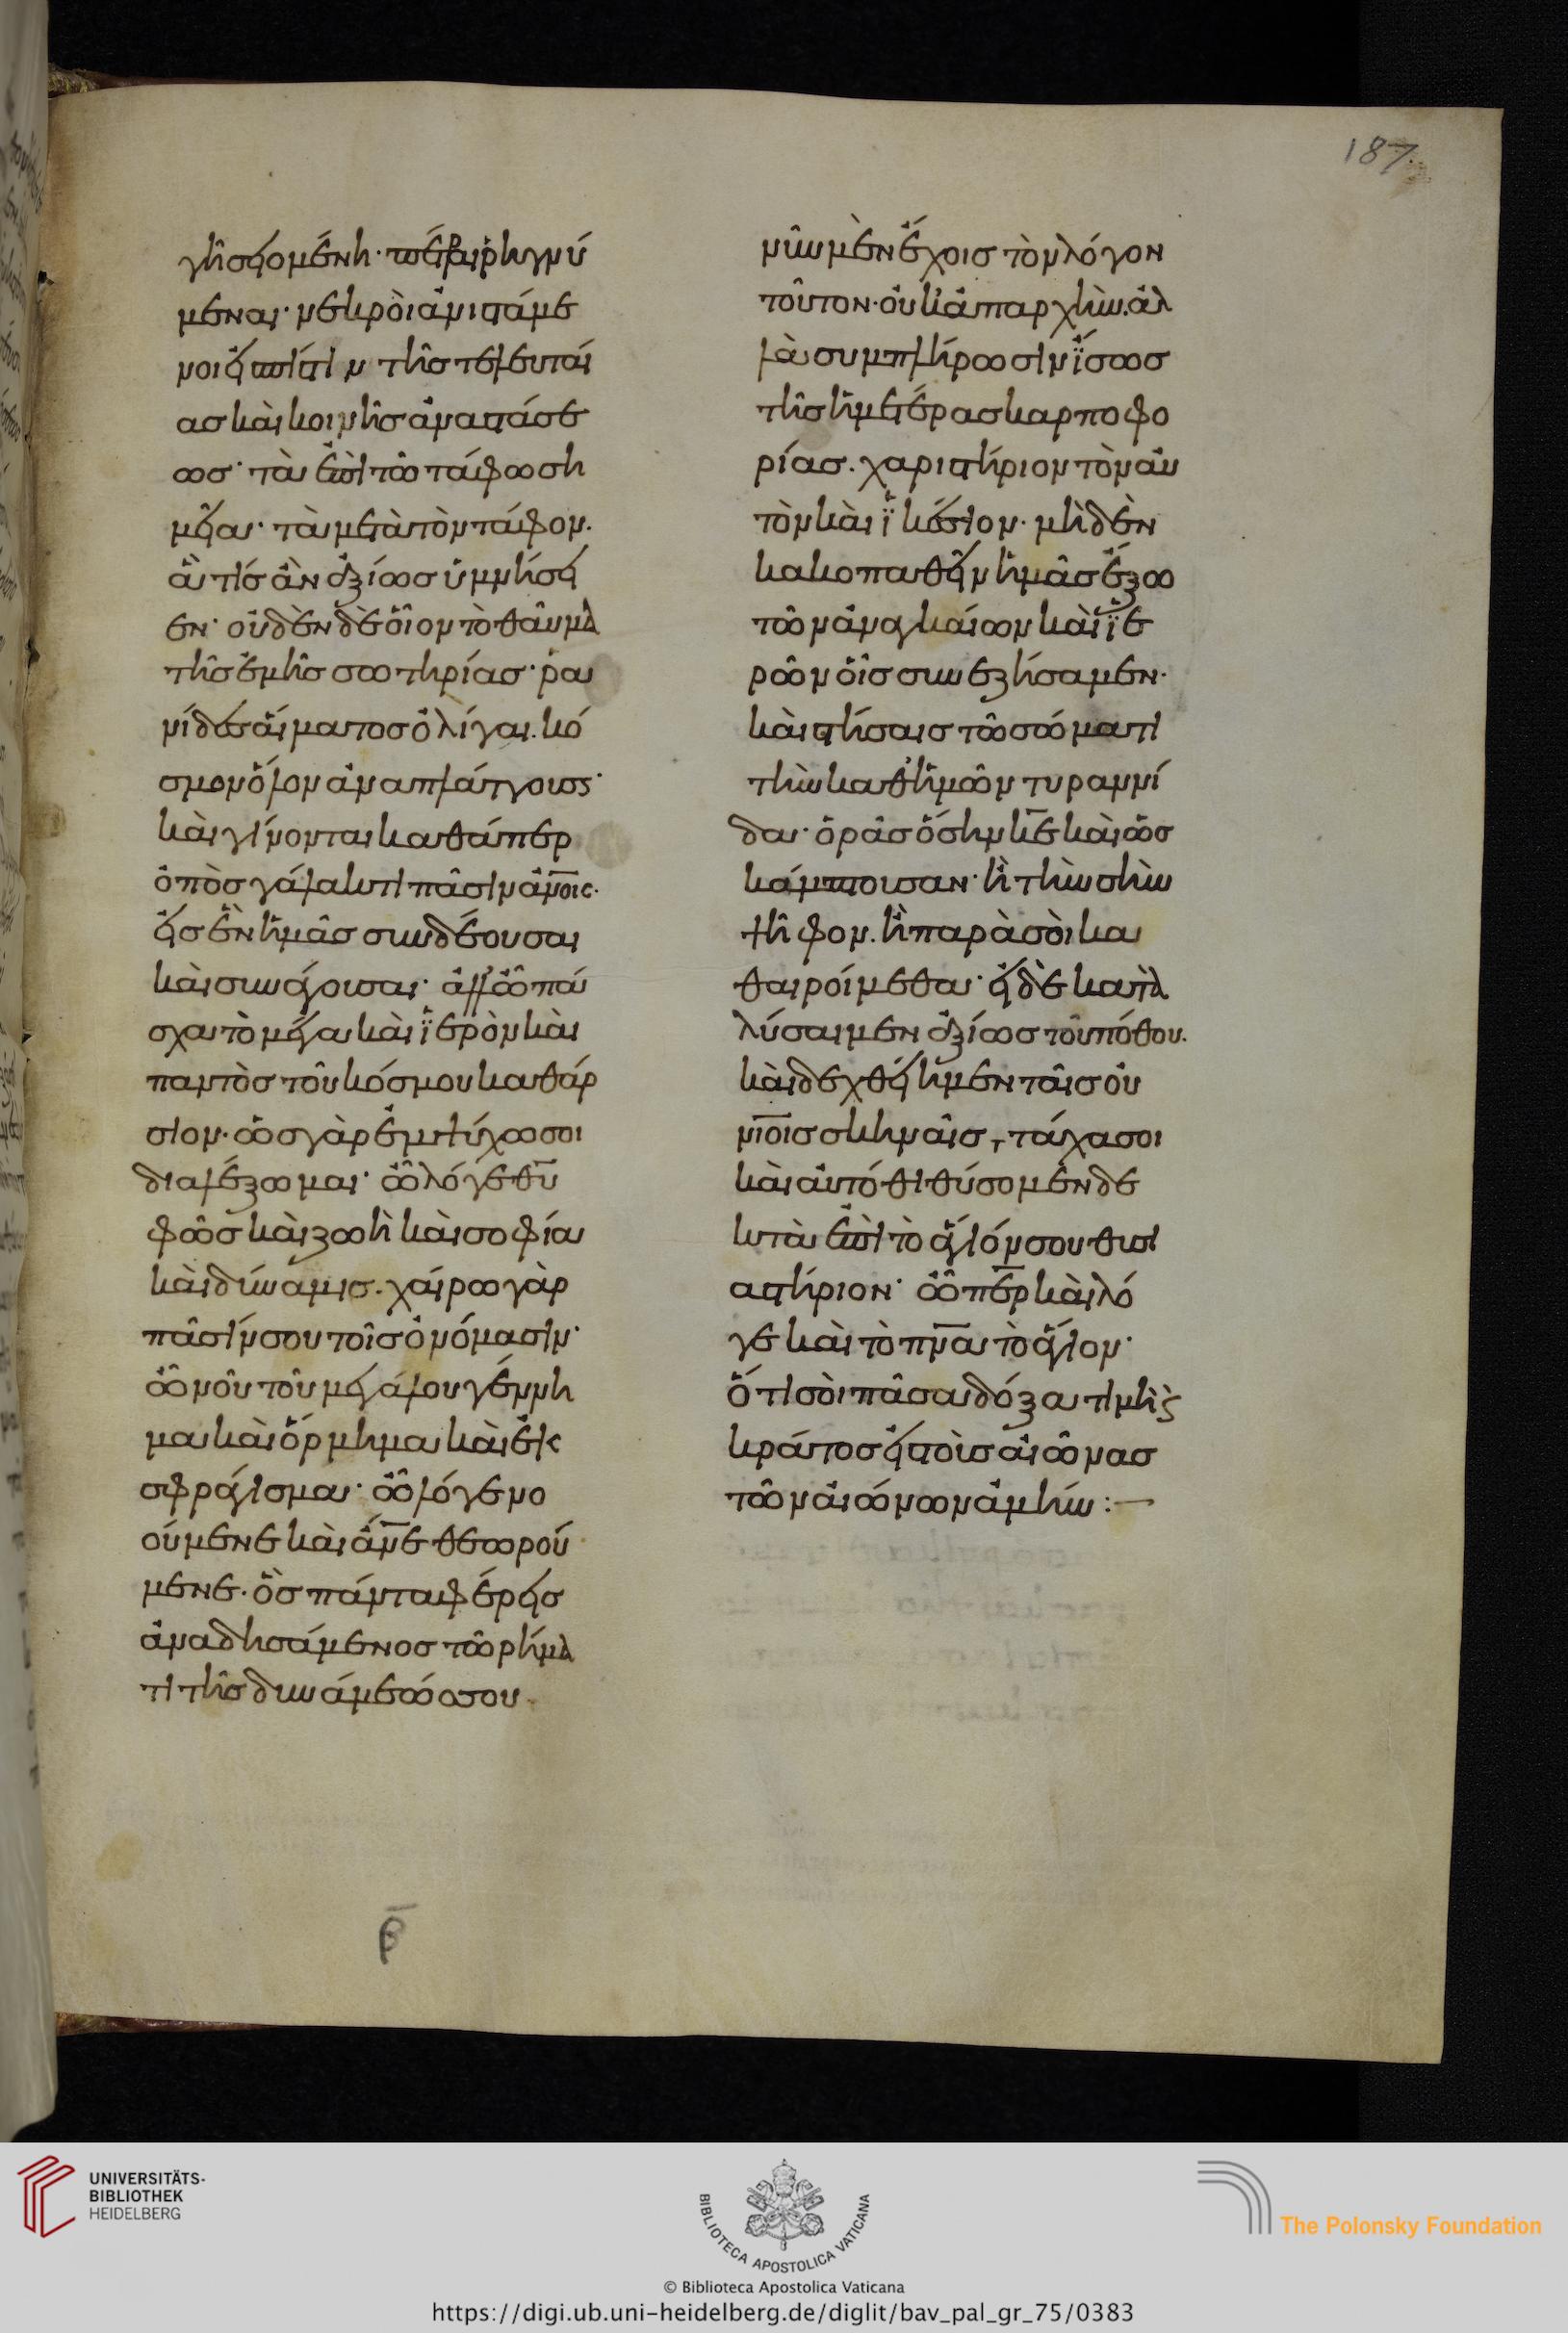 γῆ σειομένη· πέτραι ῥηγνύ
μεναι· νεκροὶ ἀνιστάμε
νοι εἰς πίστιν τῆς τελευταί
ας καὶ κοινῆς ἀναστάσε
ως· τὰ ἐπὶ τῶ τάφω ση
μεῖα· τὰ μετὰ τὸν τάφον.
ἃ τίς ἂν ἀξίως ὑμνήσει
εν· οὐδὲν δὲ οἷον τὸ θαῦμα
τῆς ἐμῆς σωτηρίας· ῥα
νίδες αἵματος ὀλίγαι. κό
σμον ὅλον ἀναπλάττουσι·
καὶ γίνονται καθάπερ
ὀπὸς γάλακτι πᾶσιν ἀν̅οις·
εἰς ἓν ἡμᾶς συνδέουσαι
καὶ συνάγουσαι· ἀλλ' ὦ πά
σχα τὸ μέγα καὶ ϊερὸν καὶ
παντὸς τοῦ κόσμου καθάρ
σιον· ὡς γὰρ ἐμψύχω σοι
διαλέξωμαι· ὦ λόγε θυ̅
φῶς καὶ ζωὴ καὶ σοφία
καὶ δύναμις. χαίρω γὰρ
πᾶσίν σου τοῖς ὀνόμασιν·
ὦ νοῦ τοῦ μεγάλου γέννη
μα καὶ ὅρμημα καὶ ἐκ
σφράγισμα· ὦ λόγε νο
ούμενε καὶ ἄν̅ε θεωρού
μενε. ὃς πάντα φέρεις
ἀναδησάμενος τῶ ῥήμα
τι τῆς δυνάμεώς σου.
β̅
νῦν μὲν ἔχοις τὸν λόγον
τοῦτον· οὐκ ἀπαρχὴν. ἀλ
λὰ συμπλήρωσιν ϊσως
τῆς ἡμετέρας καρποφο
ρίας. χαριστήριον τὸν αὐ
τὸν καὶ ϊκέσιον· μηδὲν
κακοπαθεῖν ἡμᾶς ἔξω
τῶν ἀναγκαίων καὶ ϊε
ρῶν οἷς συνεζήσαμεν·
καὶ στήσαις τῶ σώματι
τὴν καθ' ἡμῶν τυραννί
δα· ὁρᾶς ὅσην κ̅ε καὶ ὡς
κάμπτουσαν· ἢ τὴν σὴν
ψῆφον. ἢ παρὰ σοὶ κα
θαιροίμεθα· εἰ δὲ κατα
λύσαιμεν ἀξίως τοῦ πόθου.
καὶ δεχθείημεν ταῖς οὐ
ν̅ιοις σκηναῖς, τάχα σοι
καὶ αὐτόθι θύσομεν δε
κτὰ ἐπὶ τὸ ἅγιόν σου θυσι
αστήριον· ὦ πε̅ρ καὶ λό
γε καὶ τὸ πν̅α τὸ ἅγιον·
ὅτι σοὶ πᾶσα δόξα τιμὴ ϛ
κράτος εἰς τοὺς αἰῶνας
τῶν αἰώνων ἀμήν :—
187.
UNIVERSITÄTS-
BIBLIOTHEK
HEIDELBERG
BIBLIOTECA APOSTOLICA VATICANA
The Polonsky Foundation
© Biblioteca Apostolica Vaticana
https://digi.ub.uni-heidelberg.de/diglit/bav_pal_gr_75/0383